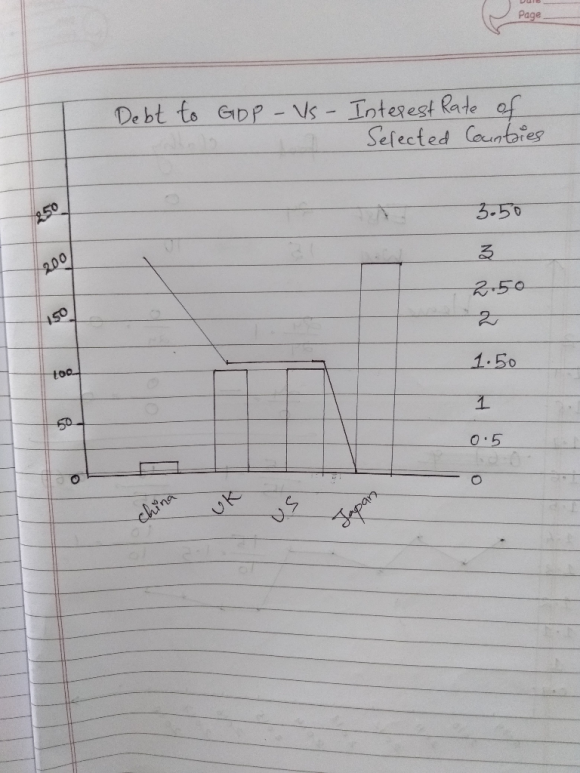 Page
Debt to GDP - Vs - Interest Rate of
Selected Countries
250
200
150
100
50
0
3.50
3
2.50
2
1.50
1
0.5
0
China
UK
US
Japan